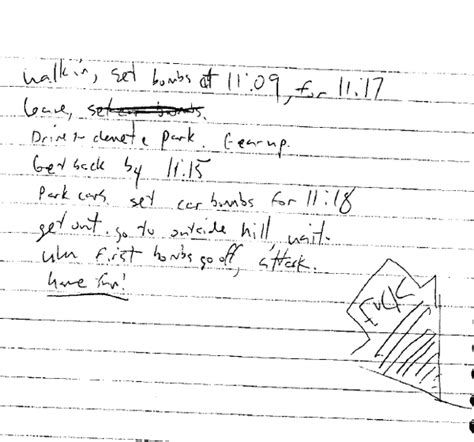 walk in, set bombs at 11:09, for 11:17
leave, set car bombs.
Drive to clemete Park. Gear up.
Get back by 11:15
Park cars, set car bombs for 11:18
get out, go to outside hill, wait.
When first bombs go off, attack.
have fun!
FUCK